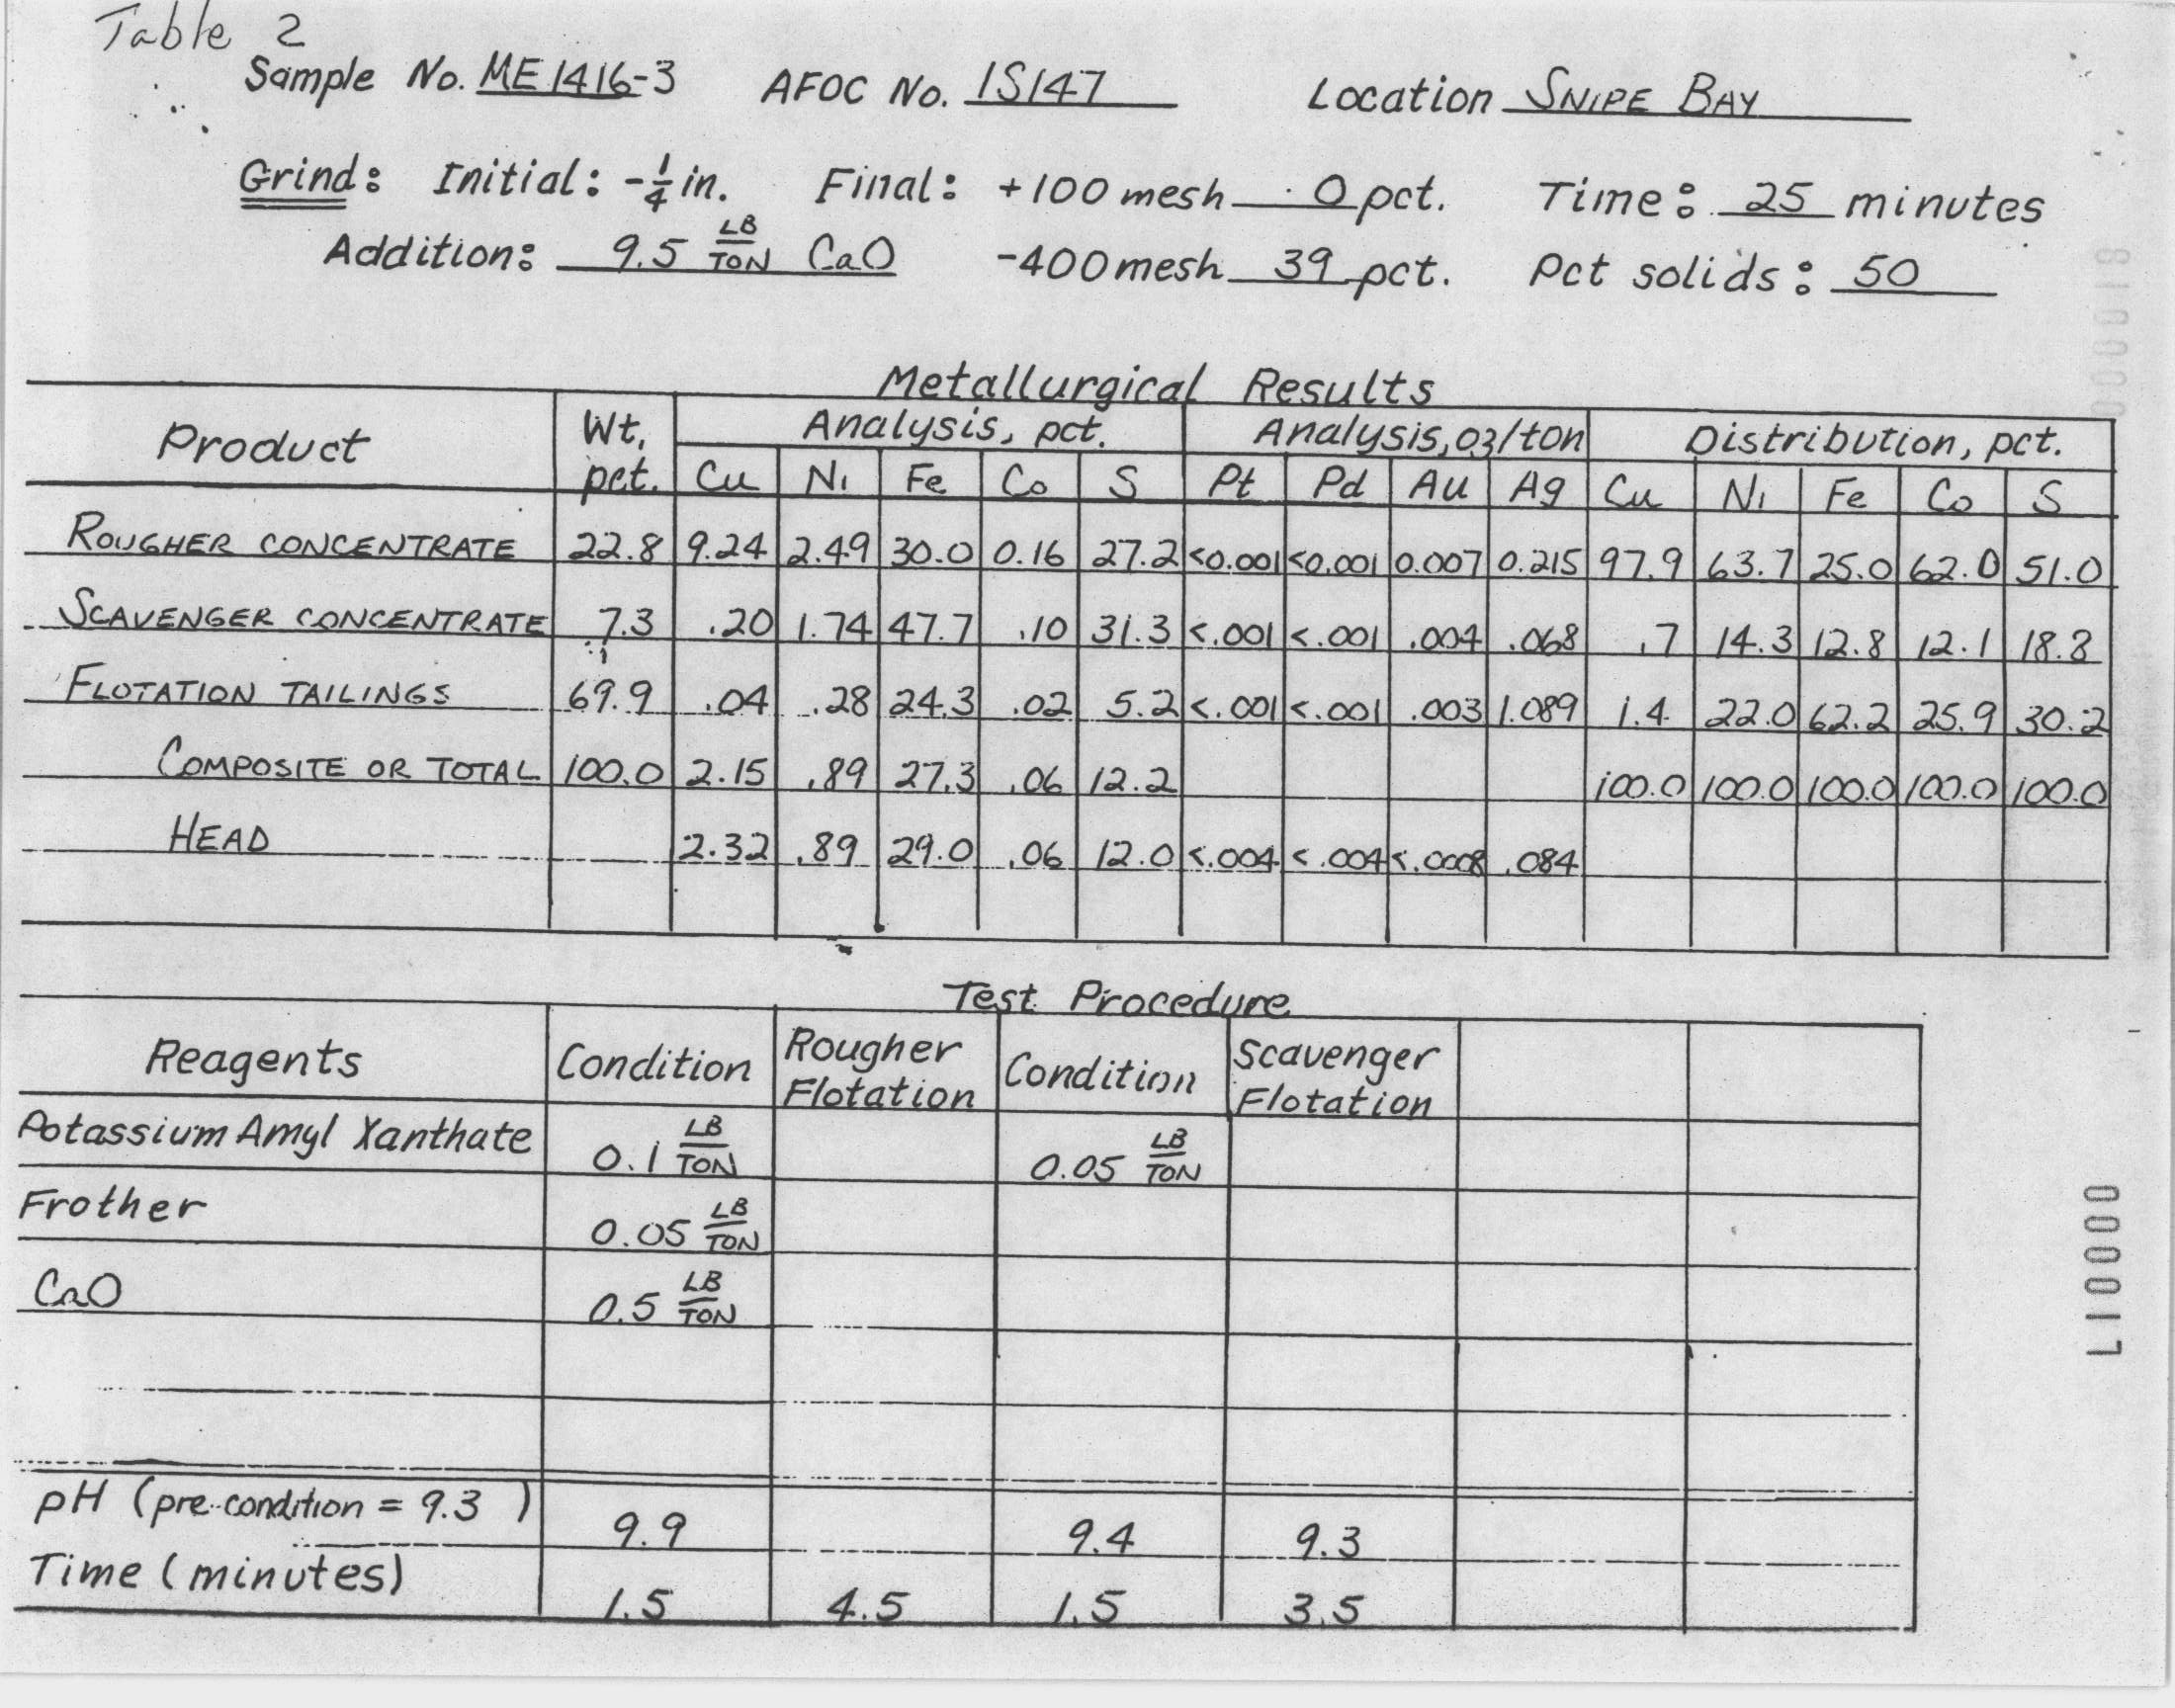 Table 2
Sample No. ME 1416-3 AFOC No. IS147 Location SNIPE BAY
Grind: Initial: -1/4 in. Final: +100 mesh 0 pct. Time: 25 minutes
Addition: 9.5 LB/TON CaO -400 mesh 39 pct. Pct solids: 50
Metallurgical Results
Product Wt, pct. Analysis, pct. Analysis, oz/ton Distribution, pct.
Cu Ni Fe Co S Pt Pd Au Ag Cu Ni Fe Co S
ROUGHER CONCENTRATE 22.8 9.24 2.49 30.0 0.16 27.2 <0.001 <0.001 0.007 0.215 97.9 63.7 25.0 62.0 51.0
SCAVENGER CONCENTRATE 7.3 .20 1.74 47.7 .10 31.3 <.001 <.001 .004 .068 .7 14.3 12.8 12.1 18.8
FLOTATION TAILINGS 69.9 .04 .28 24.3 .02 5.2 <.001 <.001 .003 1.089 1.4 22.0 62.2 25.9 30.2
COMPOSITE OR TOTAL 100.0 2.15 .89 27.3 .06 12.2 100.0 100.0 100.0 100.0 100.0
HEAD 2.32 .89 29.0 .06 12.0 <.004 <.004 <.0008 .084
Test Procedure
Reagents Condition Rougher Flotation Condition Scavenger Flotation
Potassium Amyl Xanthate 0.1 LB/TON 0.05 LB/TON
Frother 0.05 LB/TON
CaO 0.5 LB/TON
pH (pre-condition = 9.3) 9.9 9.4 9.3
Time (minutes) 1.5 4.5 1.5 3.5
000017